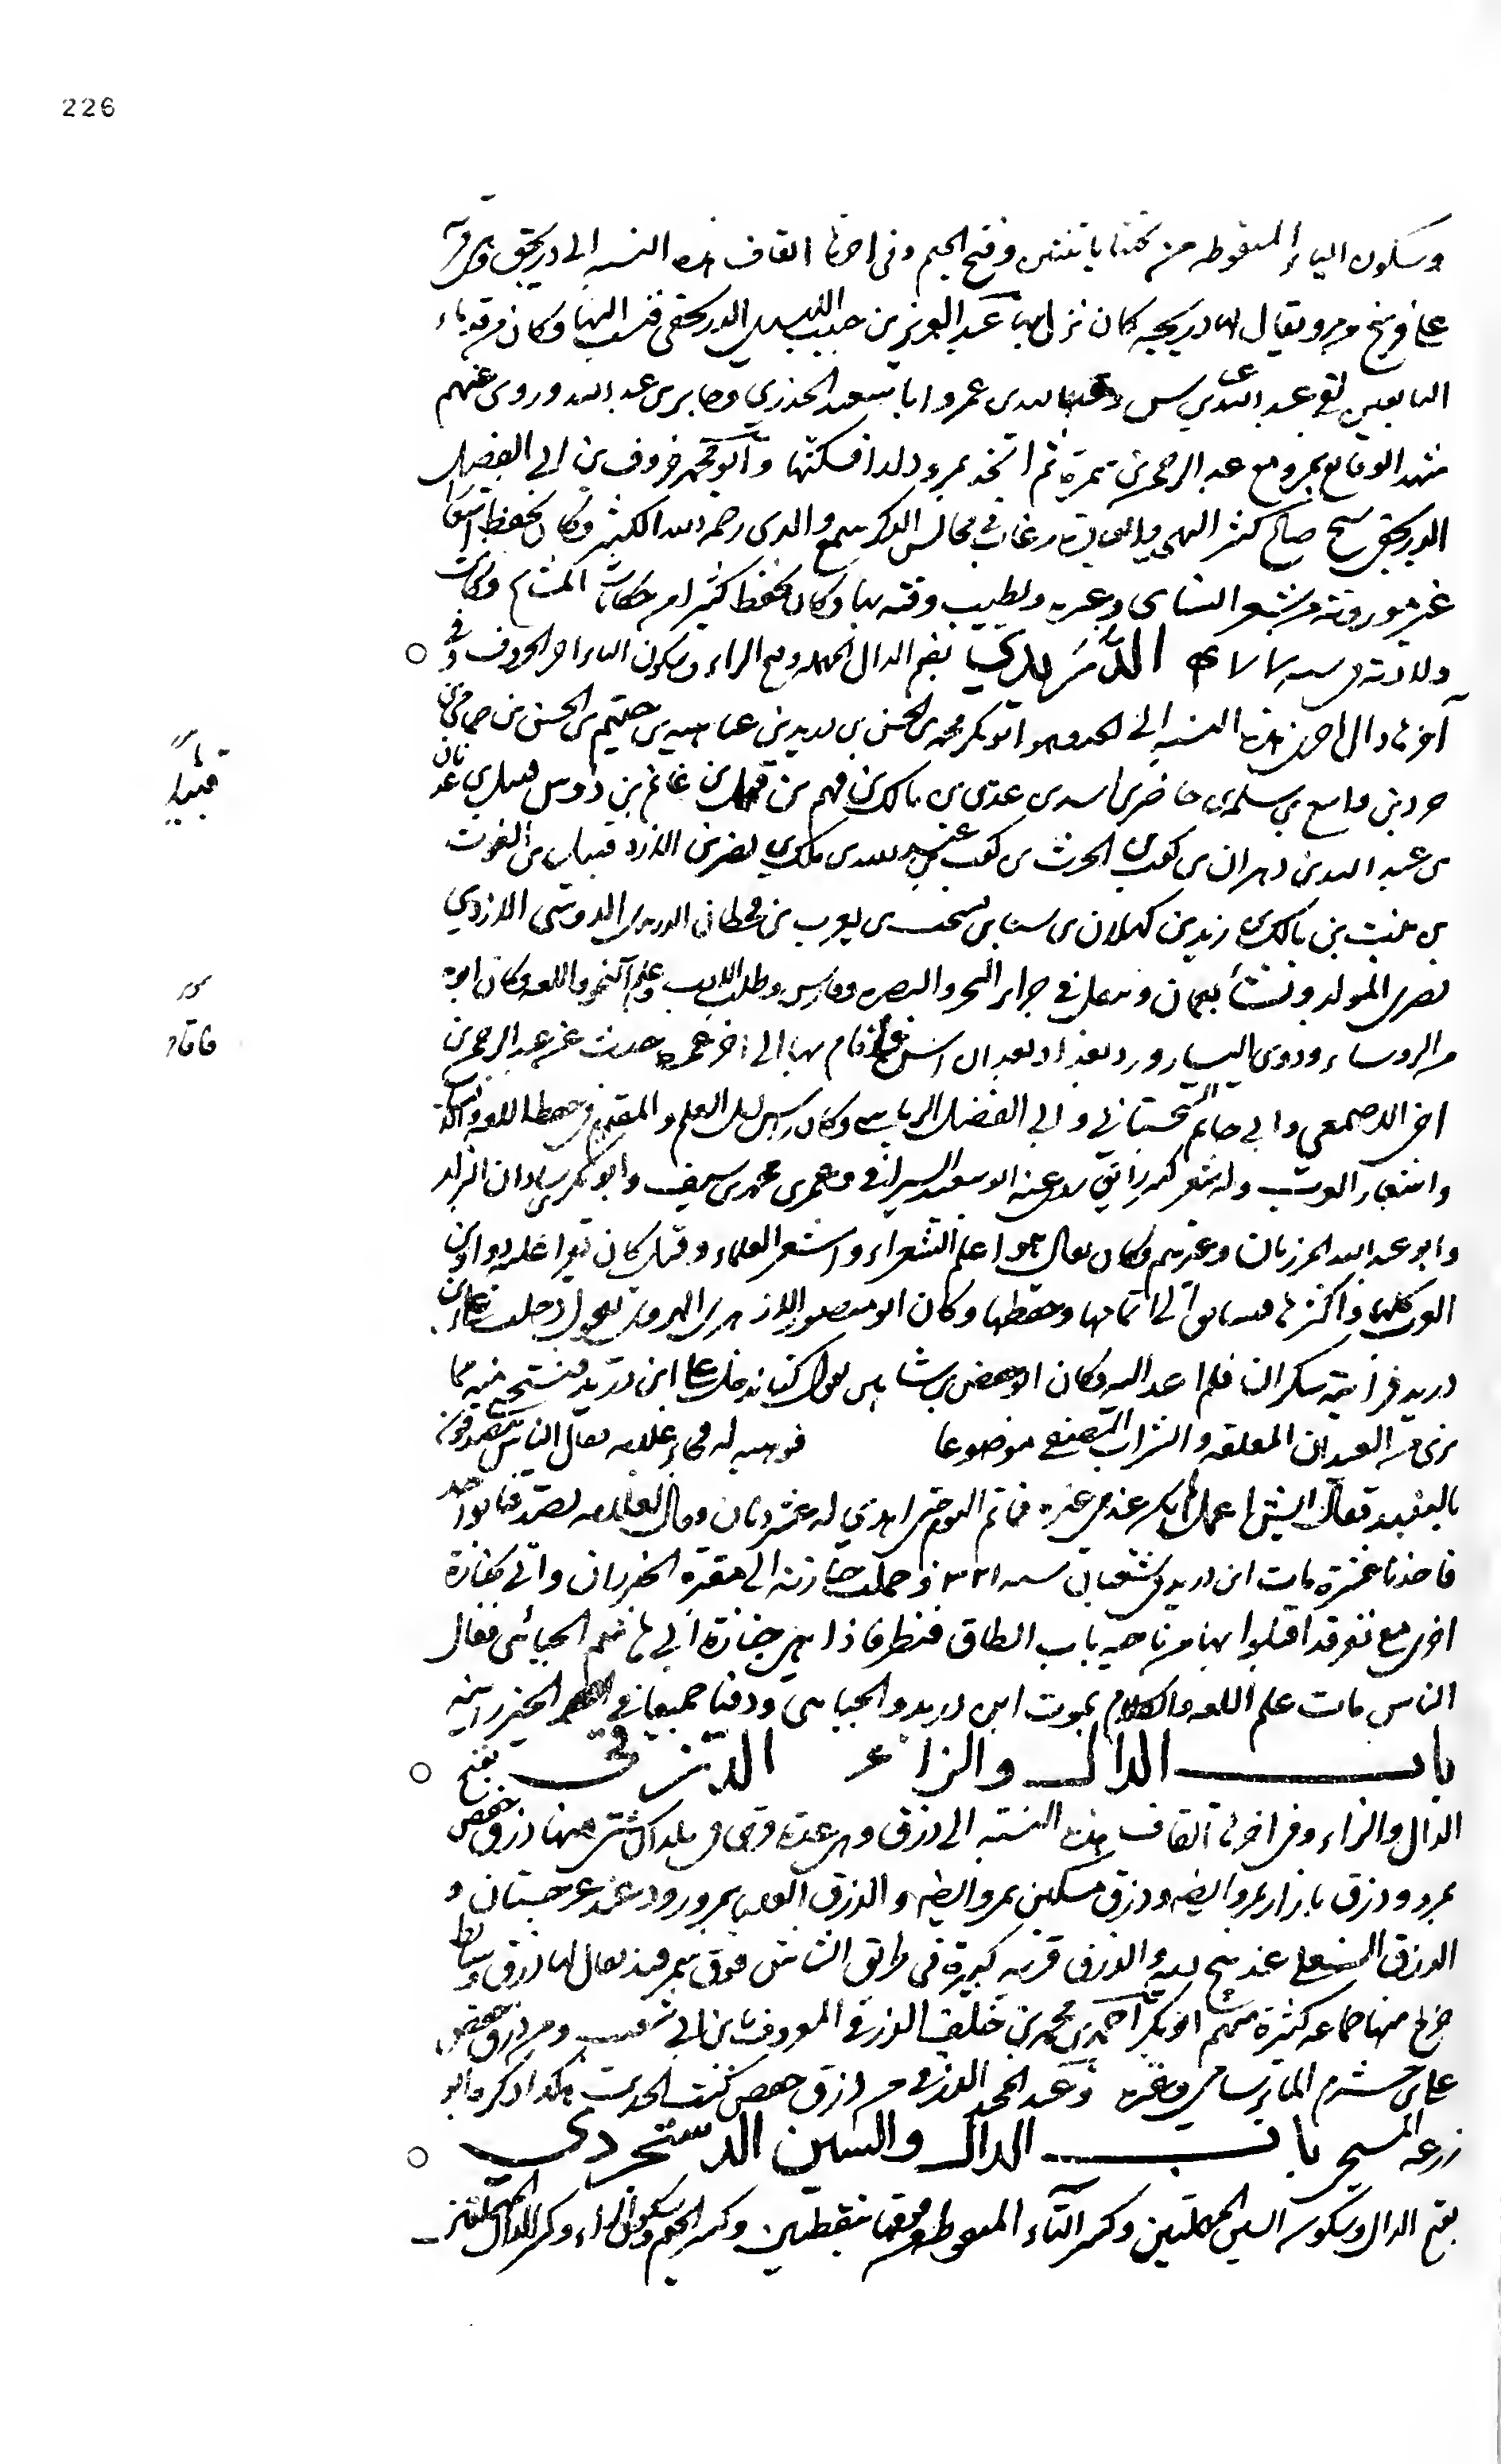 226
وسكون الياء المنقوطه من تحتها باثنتين وفتح الجيم وفى اخرها القاف هذه النسبه الى دريجق وهى قرية
على فرسخ من مرو ويقال لها دريجه كان نزل بها عبد العزيز بن حبيب الدريجقى فنسب اليها وكان من قدماء
التابعين لقى عبد الله بن عباس وعبد الله بن عمر وابا سعيد الخدري وجابر بن عبد الله وروى عنهم
شهد الوقايع بمرو مع عبد الرحمن بن سمرة ثم اتخذ بمرو دارا فسكنها وابو محمد خروف بن ابى الفضل
الدريجقى شيخ صالح كثير التهجد والعبادة رغاب فى مجالس الذكر سمع والدى رحمه الله الكثير وكان يحفظ اشعارا
غير موزونة من شعر السناى وغيره ويطيب وقته بها وكان يحفظ كثيرا من حكايات المشايخ وكانت
ولادته فى سنه الدُّرَيدي بضم الدال المهمله وفتح الراء وسكون الياء اخر الحروف وفى
آخرها دال اخرى هذه النسبه الى الجد وهو ابو بكر محمد بن الحسن بن دريد بن عتاهيه بن حنتم بن الحسن بن حمامى بن
جرو بن واسع بن سلمه بن حاضر بن اسد بن عدى بن مالك بن فهم بن غانم بن دوس قبيله بن عدثان
بن عبد الله بن زهران بن كعب بن الحرث بن كعب بن عبد الله بن ملك بن نصر بن الازد قبيله بن الغوث
بن نبت بن مالك بن زيد بن كهلان بن سبا بن يشجب بن يعرب بن قحطان الدريدى الدوسى الازدي
بصرى المولد ونشأ بعمان وتنقل فى جزائر البحر والبصره وفارس وطلب الادب وعلم النحو واللغه وكان ابوه
من الروساء وذوى اليسار ورد بغداد بعد ان اسن فاقام بها الى اخر عمره حدث عن عبد الرحمن بن
اخى الاصمعي وابى حاتم السجستاني وابى الفضل الرياشى وكان راس اهل العلم والمقدم فى حفظ اللغه والانساب
واشعار العرب وله شعر كثير رائق روى عنه ابو سعيد السيرافى وعمر بن محمد بن سيف وابو بكر بن شاذان البزاز
وابو عبد الله المرزبانى وغيرهم وكان يقال هو اعلم الشعراء واشعر العلماء وقيل كان يقرا عليه دواوين
العرب كلها او اكثرها فيسابق الى اتمامها وحفظها وكان ابو منصور الازهرى الهروى يقول دخلت على ابن
دريد فرأيته سكران فلم اعد اليه وكان ابو حفص بن شاهين يقول كنا ندخل على ابن دريد فنستحيى منه مما
نرى من العيدان المعلقه والشراب المصفى موضوعا فوهبه له فجاء غلامه فقال الناس يتصدقون
بالنبيذ فقال ايش اعمل لم يكن عندى غيره فما تم اليوم حتى اهدي له عشر دنان وقال لغلامه تصدقنا بواحد
فاخذنا عشرة مات ابن دريد فى شعبان سنه ٣٢١ وحملت جنازته الى مقبرة الخيزران واتى بجنازة
اخرى مع نفر قد اقبلوا بها من ناحيه باب الطاق فنظر فاذا هى جنازة ابى هاشم الجبائى فقال
الناس مات علم اللغه والكلام بموت ابن دريد والجباى ودفنا جميعا فى الخيزرانيه
باب الدال والزاء الدزقى بفتح
الدال والزاء وفى اخرها القاف هذه النسبه الى دزق وهى عدة قرى فى بلدان شتى منها دزق حفص
بمرو ودزق بازار بمرو ايضا ودزق مسكين بمرو ايضا والدزق العليا بمرو الرود عند غرجستان و
الدزق السفلى عند بنج ديه والدزق قرية كبيرة فى طريق الشاش فوق سمرقند يقال لها دزق وساباط
خرج منها جماعه كثيرة منهم ابو بكر احمد بن محمد بن خلف الدزقى المعروف بابن ابى شعيب ومن دزق حفص
على بن خشرم المابرسامى وغيره وعبد المجيد الدزقى من دزق حفص كتب الحديث هكذا ذكره ابو
زرعه السنجى باب الدال والسين الدستجردي
بفتح الدال وسكون السين المهملتين وكسر التاء المنقوطه من فوقها بنقطتين وكسر الجيم وسكون الراء وكسر الدال المهملتين